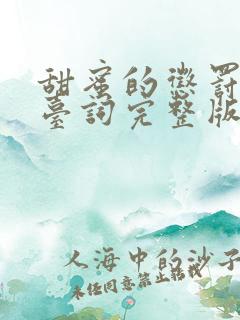 甜蜜的懲罰
臺詞完整版
人海中的沙子
未经同意禁止转载